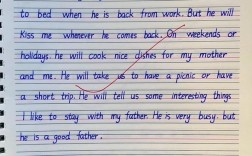 to bed when he is back from work. But he will
kiss me whenever he comes back. On weekends or
holidays he will cook nice dishes for my mother
and me. He will take us to have a picnic or have
a short trip. He will tell us some interesting things
I like to stay with my father. He is very busy. but
he is a good father.